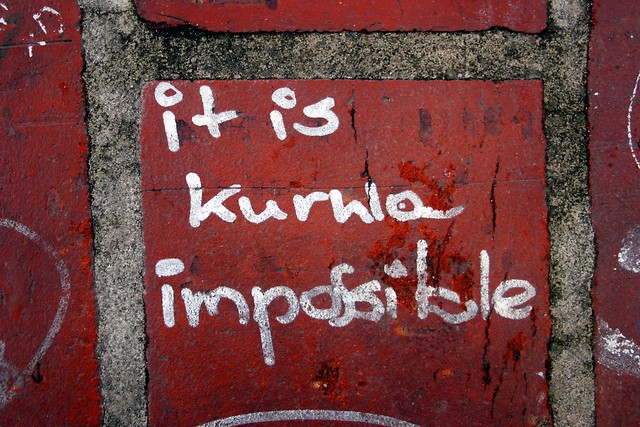 it is
kurnla
impossible